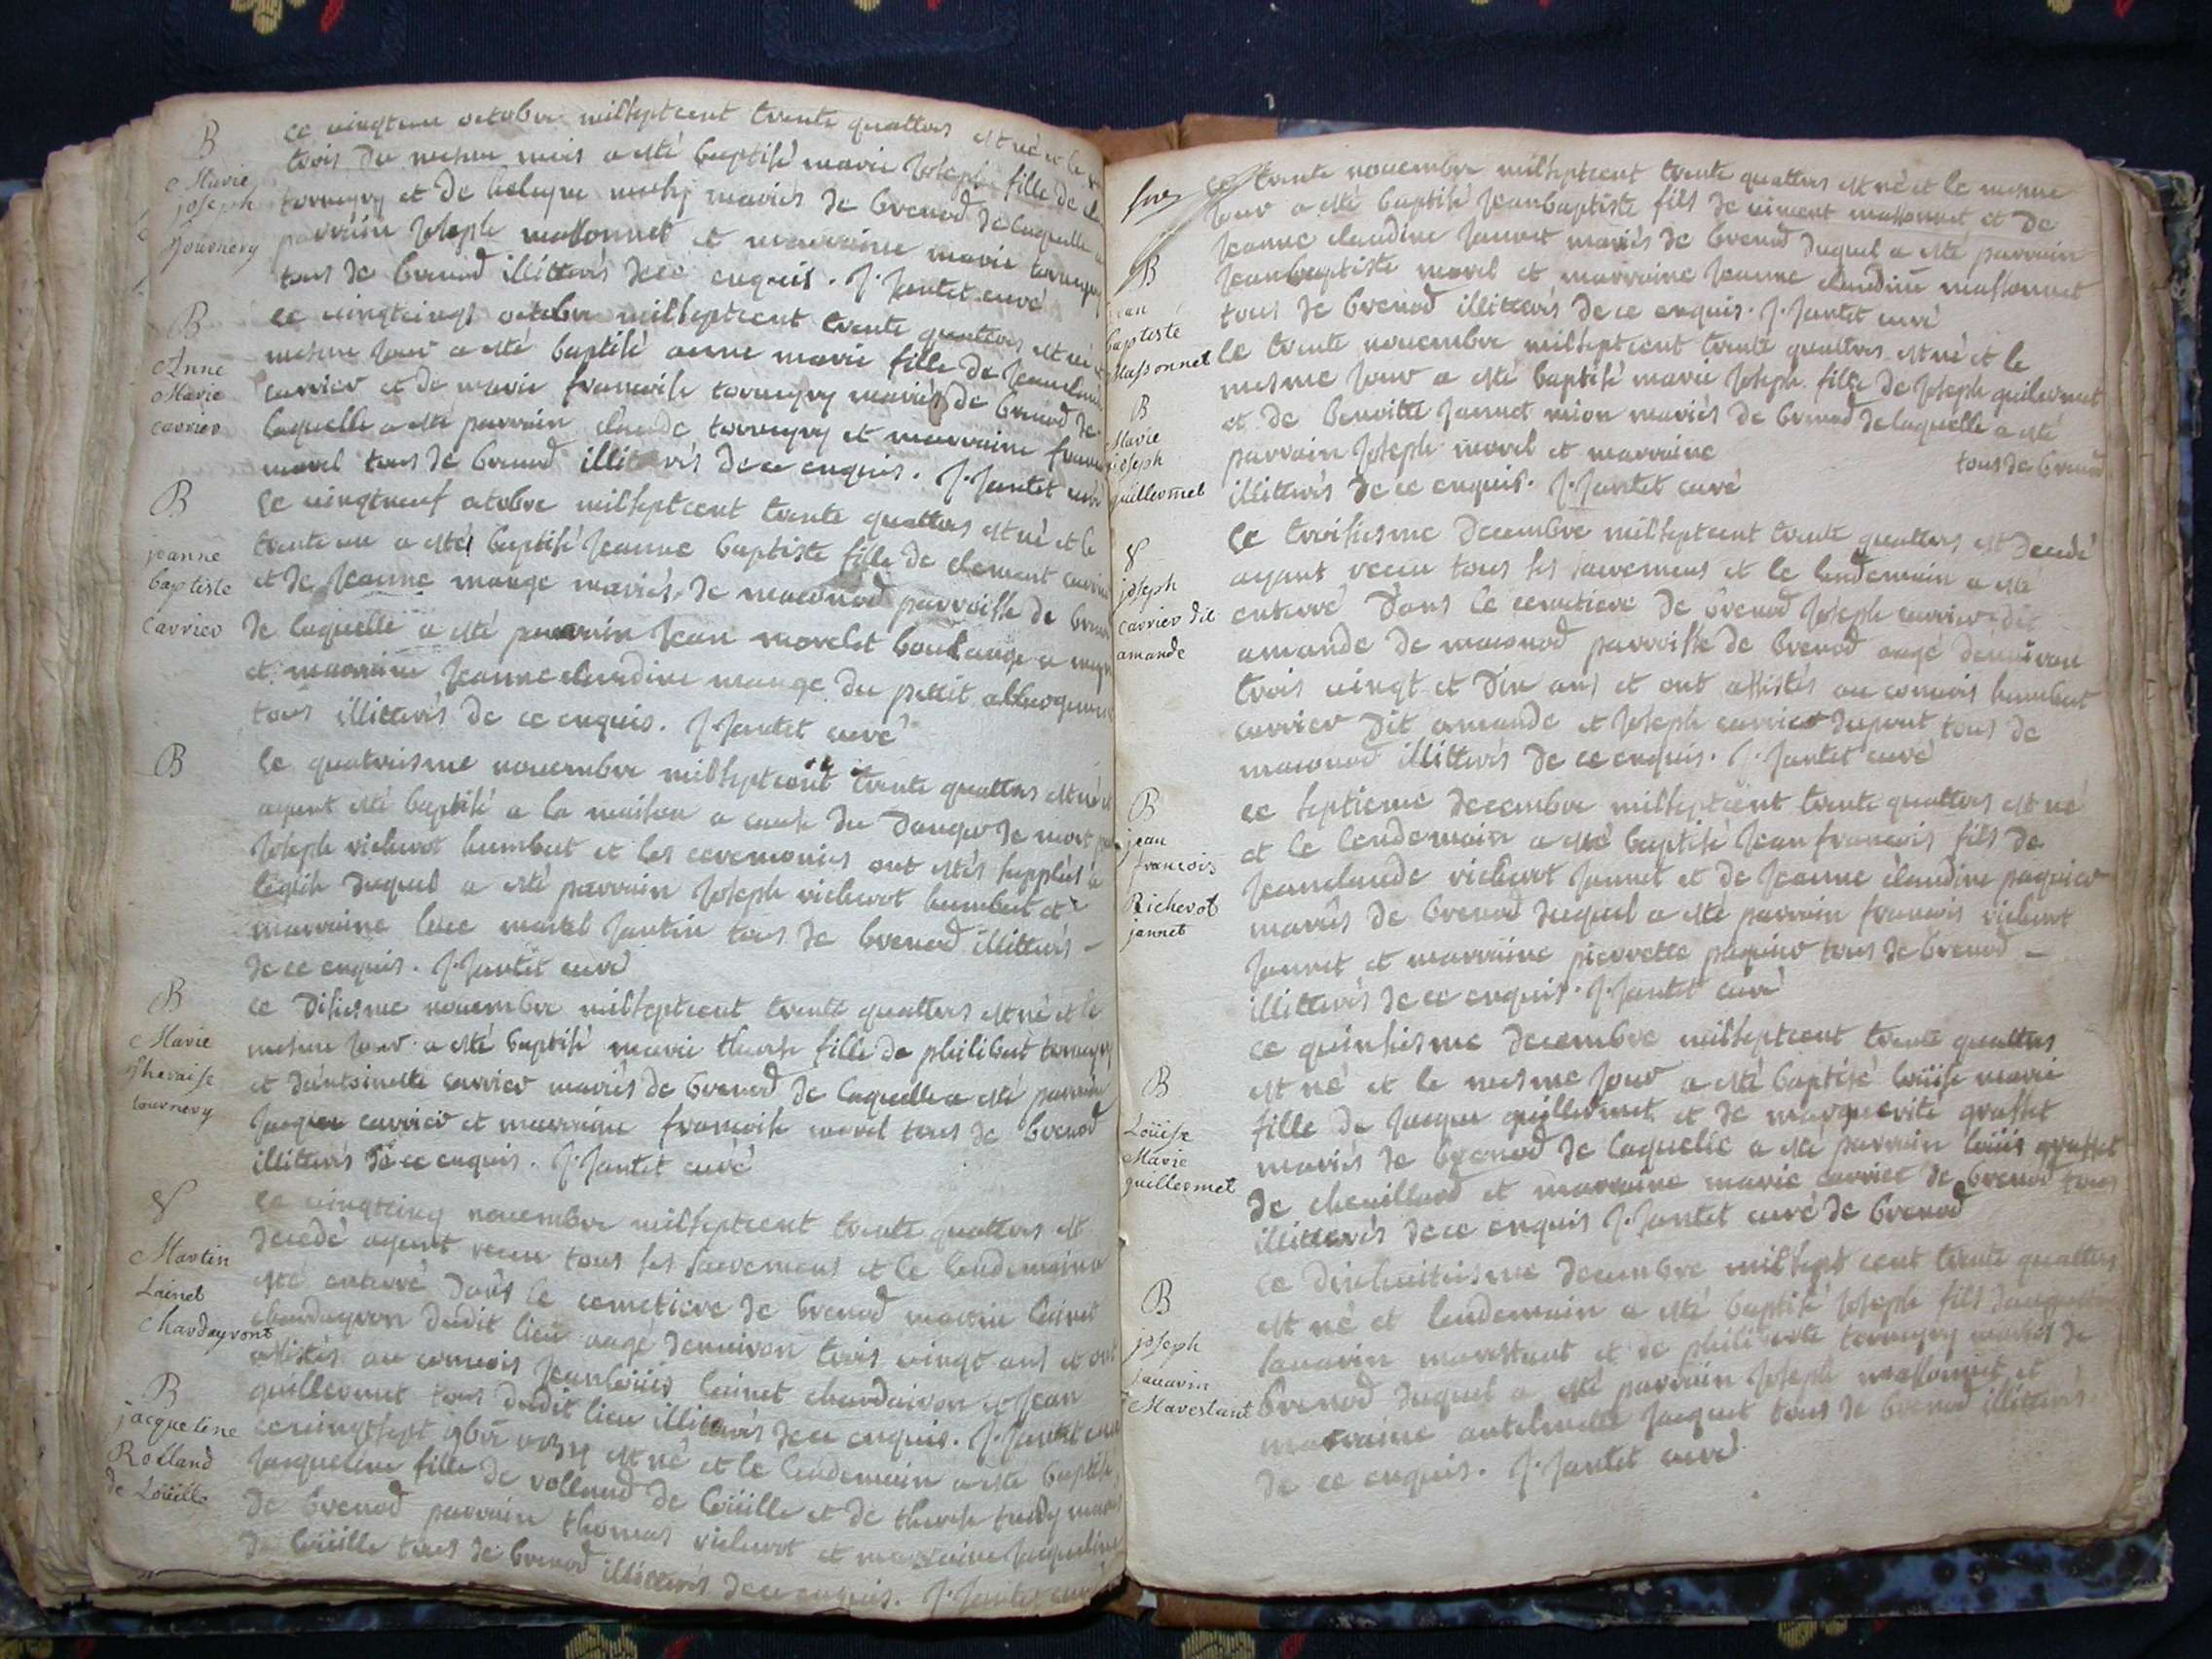 B
Marie
joseph
tournery
ce vingt un octobre milseptcent trente quattres est né et le
trois du mesme mois a esté baptisé marie Joseph fille de
tornery et de mariés de brenod de laquelle a
parrain Joseph massonnet et marraine marie tornery
tous de brenod illitterés de ce enquis. J. Jantet curé
B
Anne
Marie
carrier
ce vingtcinq octobre milseptcent trente quattres est né
mesme jour a esté baptisé anne marie fille de Jeanclaude
carrier et de marie francoise tornery mariés de brenod de
laquelle a esté parrain claude tornery et marraine
morel tous de brenod illitterés de ce enquis. J. Jantet curé
B
jeanne
baptiste
carrier
le vingtneuf octobre milseptcent trente quattres est né et le
trente un a esté baptisé Jeanne baptiste fille de clement carrier
et de Jeanne mange mariés de maconod parroisse de brenod
de laquelle a esté parrain Jean morelet
et marraine Jeanne claudine mange du pettit abbergement
tous illitterés de ce enquis. J. Jantet curé
B
le quatriesme novembre milseptcent trente quattres est né
ayant esté baptisé a la maison a cause du danger de mort
Joseph richerot humbert et les ceremonies ont estés supplées a
leglise duquel a esté parrain Joseph richerot humbert et
marraine luce martel Jantin tous de brenod illitterés
de ce enquis. J. Jantet curé
B
Marie
Theraise
tournery
ce disiesme novembre milseptcent trente quattres est né et le
mesme jour a esté baptisé marie therese fille de philibert tornery
et dantoinette carrier mariés de brenod de laquelle a esté parrain
Jacque carrier et marraine francoise morel tous de brenod
illitterés de ce enquis. J. Jantet curé
S
Martin
Lainet
Chardayront
le vingtcinq novembre milseptcent trente quattres est
decedé ayant receu tous ses sacremens et le lendemain a
esté enterré dans le cemetiere de brenod martin lainet
chardayron dudit lieu aagé denviron trois vingt ans et ont
assistés au convois Jeanlouis lainet chardairon et Jean
guillermet tous dudit lieu illitterés de ce enquis. J. Jantet curé
B
jacqueline
Rolland
de Loüille
ce vingtsept 9bre 1734 est né et le lendemain a esté baptisé
Jacqueline fille de rolland de loüille et de therese
de brenod parrain thomas richerot et marraine Jacqueline
de loüille tous de brenod illitterés de ce enquis. J. Jantet curé
B
jean
baptiste
Massonnet
ce trente novembre milseptcent trente quattres est né et le mesme
jour a esté baptisé Jeanbaptiste fils de vincent massonnet et de
Jeanne claudine Jannet mariés de brenod duquel a esté parrain
Jeanbaptiste morel et marraine Jeanne claudine massonnet
tous de brenod illitterés de ce enquis. J. Jantet curé
B
Marie
joseph
guillermet
le trente novembre milseptcent trente quattres est né et le
mesme jour a esté baptisé marie Joseph fille de Joseph guilermet
et de benoitte Jannet mion mariés de brenod de laquelle a esté
parrain Joseph morel et marraine tous de brenod
illitterés de ce enquis. J. Jantet curé
S
joseph
carrier dit
amande
le troisiesme decembre milseptcent trente quattres est decedé
ayant receu tous ses sacremens et le lendemain a esté
enterré dans le cemetiere de brenod Joseph carrier dit
amande de maconod parroisse de brenod aagé denviron
trois vingt et dix ans et ont assistés au convois humbert
carrier dit amande et Joseph carrier dupont tous de
maconod illitterés de ce enquis. J. Jantet curé
B
jean
francois
Richerot
jannet
ce septieme decembre milseptcent trente quattres est né
et le lendemain a esté baptisé Jean francois fils de
Jeanclaude richerot Jannet et de Jeanne claudine paquier
mariés de brenod duquel a esté parrain francois richerot
Jannet et marraine pierrette paquier tous de brenod
illitterés de ce enquis. J. Jantet curé
B
Loüise
Marie
guillermet
ce quinsiesme decembre milseptcent trente quattres
est né et le mesme jour a esté baptisé loüise marie
fille de Jacque guillermet et de marguerite grosset
mariés de brenod de laquelle a esté parrain loüis grosset
de chevillard et marraine marie carrier de brenod tous
illitterés de ce enquis J. Jantet curé de brenod
B
joseph
Savarin
Marestant
ce dixhuitiesme decembre milsept cent trente quattres
est né et lendemain a esté baptisé Joseph fils
savarin marestant et de philiberte tornery mariés de
brenod duquel a esté parrain Joseph massonnet et
marraine antelmette Jacquet tous de brenod illitterés
de ce enquis. J. Jantet curé